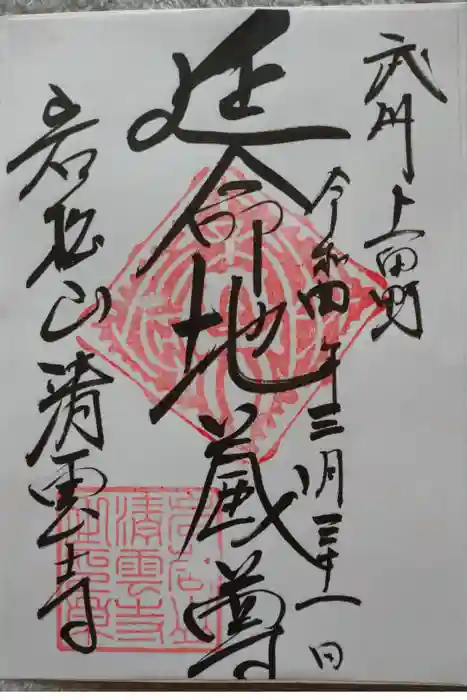 武州 上田野
令和四年三月三十一日
延命地蔵尊
岩松山 清雲寺
岩松山
清雲寺